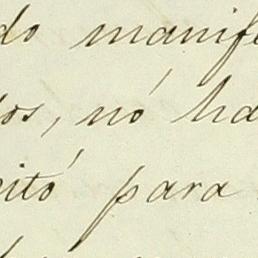 do manife
dos, nó ha
itó para